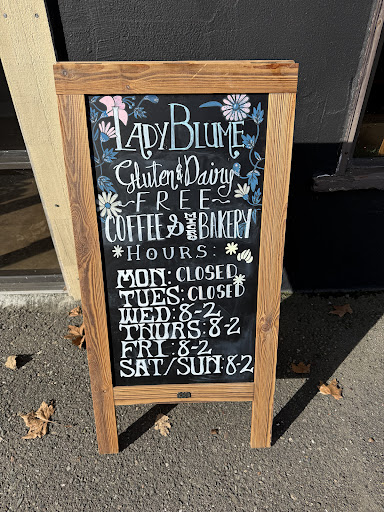 LADYBLUME
Gluten & Dairy
~FREE~
COFFEE & BAKERY
HOURS:
MON: CLOSED
TUES: CLOSED
WED: 8-2
THURS: 8-2
FRI: 8-2
SAT/SUN: 8-2